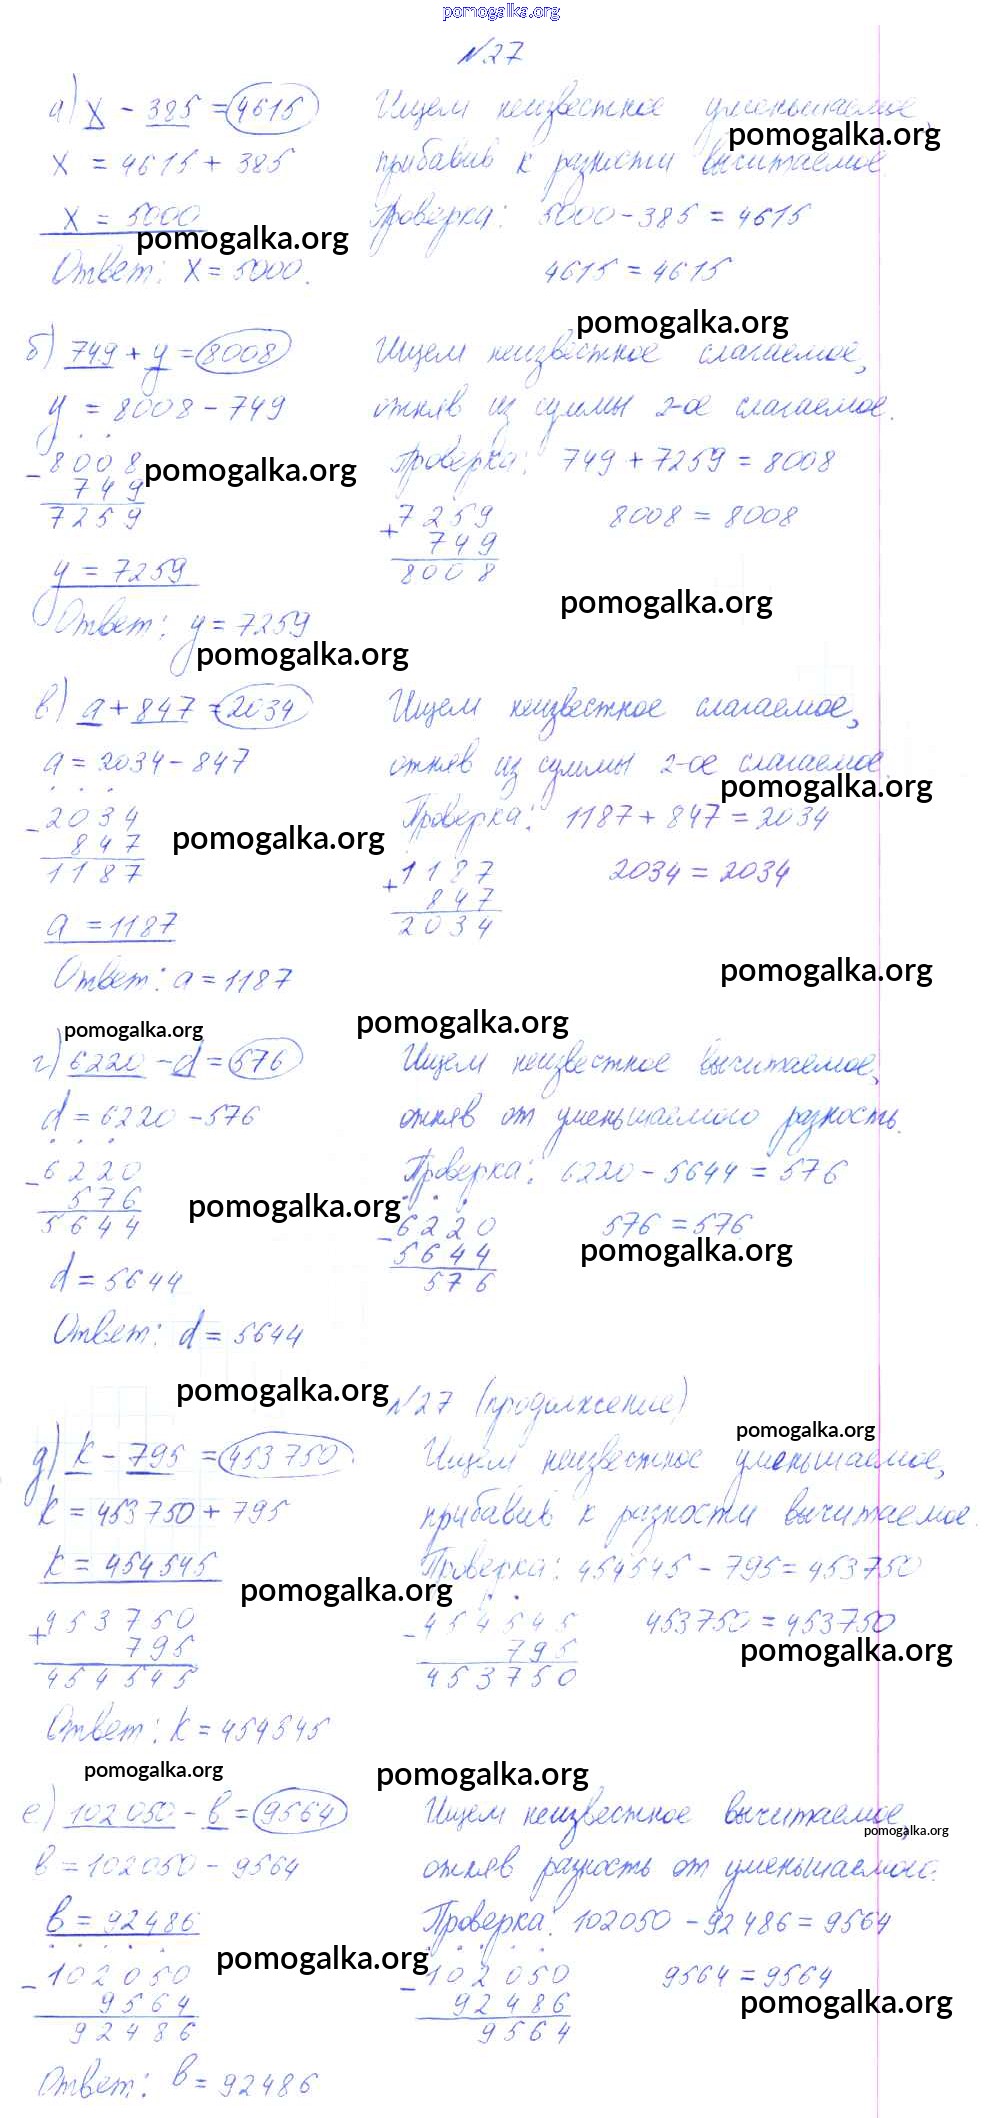 pomogalka.org
№27
а) х - 385 = 4615 Ищем неизвестное уменьшаемое,
pomogalka.org
х = 4615 + 385 прибавив к разности вычитаемое.
х = 5000 Проверка: 5000 - 385 = 4615
pomogalka.org
Ответ: х = 5000. 4615 = 4615
pomogalka.org
б) 749 + y = 8008 Ищем неизвестное слагаемое,
y = 8008 - 749 отняв из суммы 2-ое слагаемое.
- 8008 Проверка: 749 + 7259 = 8008
pomogalka.org
749
7259 + 7259 8008 = 8008
749
y = 7259 8008
pomogalka.org
Ответ: y = 7259
pomogalka.org
в) a + 847 = 2034 Ищем неизвестное слагаемое,
a = 2034 - 847 отняв из суммы 2-ое слагаемое.
pomogalka.org
- 2034 Проверка: 1187 + 847 = 2034
847 pomogalka.org
1187 + 1187 2034 = 2034
847
a = 1187 2034
Ответ: a = 1187 pomogalka.org
pomogalka.org pomogalka.org
г) 6220 - d = 576 Ищем неизвестное вычитаемое,
d = 6220 - 576 отняв от уменьшаемого разность.
- 6220 Проверка: 6220 - 5644 = 576
576 pomogalka.org
5644 - 6220 576 = 576
5644 pomogalka.org
d = 5644 576
Ответ: d = 5644
pomogalka.org №27 (продолжение)
pomogalka.org
д) k - 795 = 453750 Ищем неизвестное уменьшаемое,
k = 453750 + 795 прибавив к разности вычитаемое.
k = 454545 Проверка: 454545 - 795 = 453750
pomogalka.org
+ 453750 - 454545 453750 = 453750
795 795 pomogalka.org
454545 453750
Ответ: k = 454545
pomogalka.org pomogalka.org
е) 102050 - в = 9564 Ищем неизвестное вычитаемое,
pomogalka.org
в = 102050 - 9564 отняв разность от уменьшаемого.
в = 92486 Проверка: 102050 - 92486 = 9564
pomogalka.org
- 102050 - 102050 9564 = 9564
9564 92486 pomogalka.org
92486 9564
Ответ: в = 92486